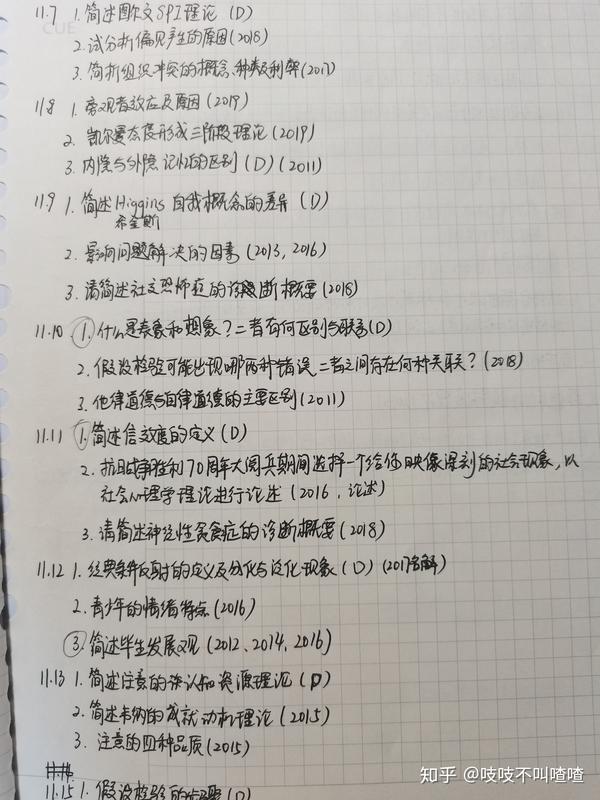 11.7 1. 简述图尔文SPI理论 (D)
2. 试分析偏见产生的原因(2018)
3. 简析组织冲突的概念、种类及利弊(2017)
11.8 1. 旁观者效应及原因 (2019)
2. 凯尔曼态度形成三阶段理论 (2019)
3. 内隐与外隐记忆的区别 (D) (2011)
11.9 1. 简述Higgins 自我概念的差异 (D)
希金斯
2. 影响问题解决的因素 (2013, 2016)
3. 请简述社交恐怖症的诊断概要(2018)
11.10 1. 什么是表象和想象？二者有何区别与联系(D)
2. 假设检验可能出现哪两种错误, 二者之间存在何种关联？(2018)
3. 他律道德与自律道德的主要区别(2011)
11.11 1. 简述信效度的定义 (D)
2. 抗日战争胜利70周年大阅兵期间选择一个给你映像深刻的社会现象, 以
社会心理学理论进行论述 (2016, 论述)
3. 请简述神经性贪食症的诊断概要 (2018)
11.12 1. 经典条件反射的定义及分化与泛化现象 (D) (2017名解)
2. 青少年的情绪特点 (2016)
3. 简述毕生发展观 (2012、2014、2016)
11.13 1. 简述注意的认知资源理论 (D)
2. 简述韦纳的成就动机理论 (2015)
3. 注意的四种品质(2015)
11.15 1. 假设检验的步骤 (D)
知乎 @吱吱不叫喳喳